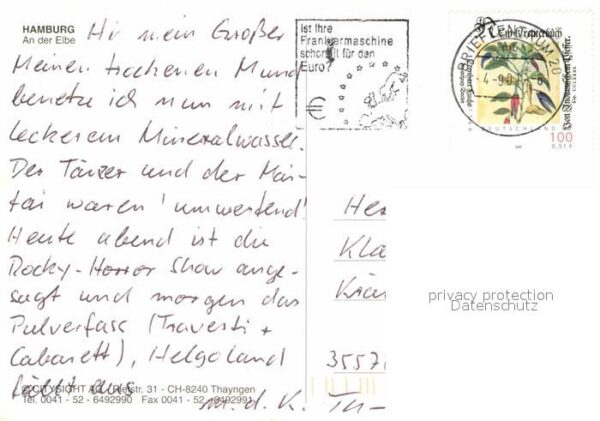 HAMBURG
An der Elbe
Hi mein Großer
Meinen trockenen Mund
benetze ich nun mit
leckerem Mineralwasser.
Der Tänzer und der Mai-
tai waren "umwerfend"!
Heute abend ist die
Rocky-Horror Show ange-
sagt und morgen das
Pulverfass (Travesti +
Cabarett), Helgoland
fällt aus
m. d. K.
© CITYSIGHT AG
str. 31 - CH-8240 Thayngen
Tel. 0041 - 52 - 6492990 Fax 0041 - 52 - 6492991
Ist Ihre
Frankiermaschine
schon fit für den
Euro?
€
BRIEFZENTRUM 20
DEUTSCHLAND
100
0,51 €
He
Kla
3557
privacy protection
Datenschutz